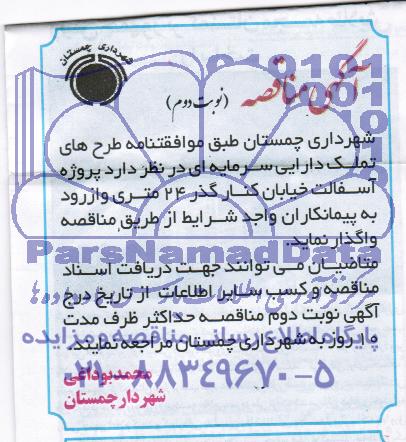 شهرداری چمستان
آگهی مناقصه
(نوبت دوم)
شهرداری چمستان طبق موافقتنامه طرح های
تملک دارایی سرمایه ای در نظر دارد پروژه
آسفالت خیابان کنار گذر ۲۴ متری وازرود
به پیمانکاران واجد شرایط از طریق مناقصه
واگذار نماید.
متقاضیان می توانند جهت دریافت اسناد
مناقصه و کسب سایر اطلاعات از تاریخ درج
آگهی نوبت دوم مناقصه حداکثر ظرف مدت
۱۰ روز به شهرداری چمستان مراجعه نمایند.
محمد بوداغی
شهردار چمستان
ParsNamadData
پایگاه اطلاع رسانی مناقصه و مزایده
۰۲۱-۸۸۳۴۹۶۷۰-۵